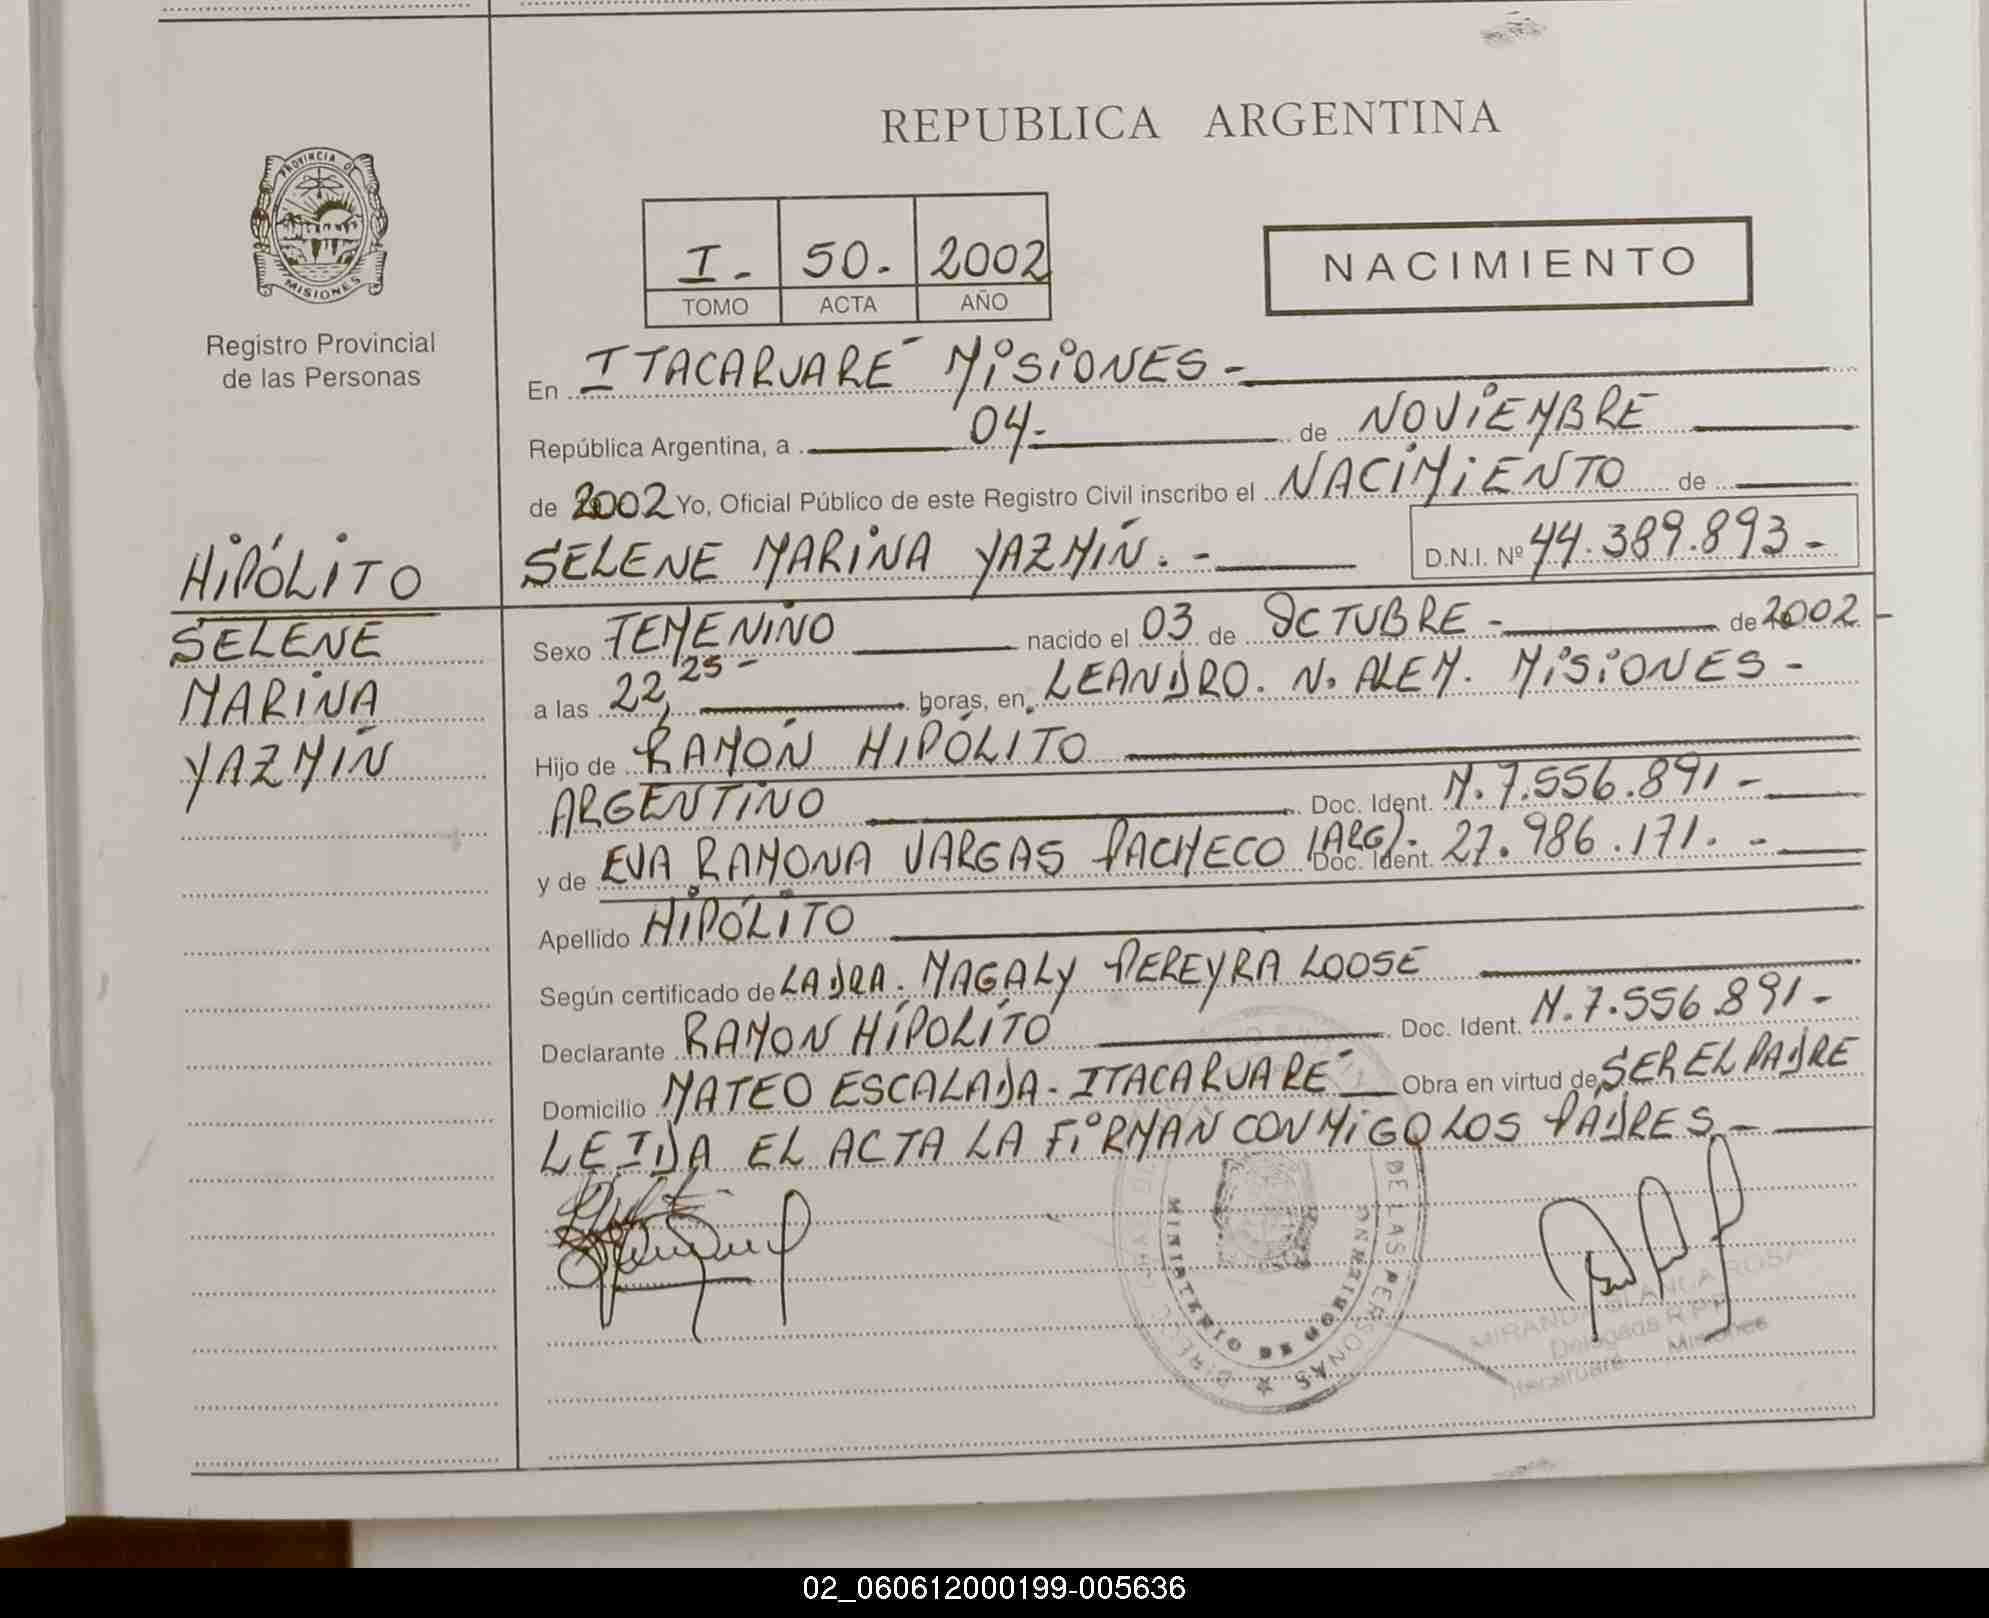 REPUBLICA ARGENTINA
PROVINCIA DE
MISIONES
Registro Provincial
de las Personas
I.- 50.- 2002
TOMO ACTA AÑO
NACIMIENTO
En ITACARUARÉ MISIONES -
República Argentina, a 04- de NOVIEMBRE
de 2002 Yo, Oficial Público de este Registro Civil inscribo el NACIMIENTO de
SELENE MARINA YAZMÍN. - D.N.I. Nº 44.389.893 -
HIPÓLITO
SELENE
MARINA
YAZMÍN
Sexo FEMENINO nacido el 03 de OCTUBRE - de 2002 -
a las 22,25- horas, en LEANDRO. N. ALEM. MISIONES -
Hijo de RAMÓN HIPÓLITO
ARGENTINO Doc. Ident. M. 7.556.891 -
y de EVA RAMONA VARGAS PACHECO (ARG)- Doc. Ident. 27.986.171. -
Apellido HIPÓLITO
Según certificado de LA DRA. MAGALY PEREYRA LOOSE
Declarante RAMON HIPÓLITO Doc. Ident. M. 7.556.891 -
Domicilio MATEO ESCALADA - ITACARUARÉ Obra en virtud de SER EL PADRE
LEIDA EL ACTA LA FIRMAN CONMIGO LOS PADRES. -
MINISTERIO DE GOBIERNO
DE LAS PERSONAS
MIRANDA BLANCA ROSA
Delegada R.P.P.
Itacaruaré Misiones
02_060612000199-005636